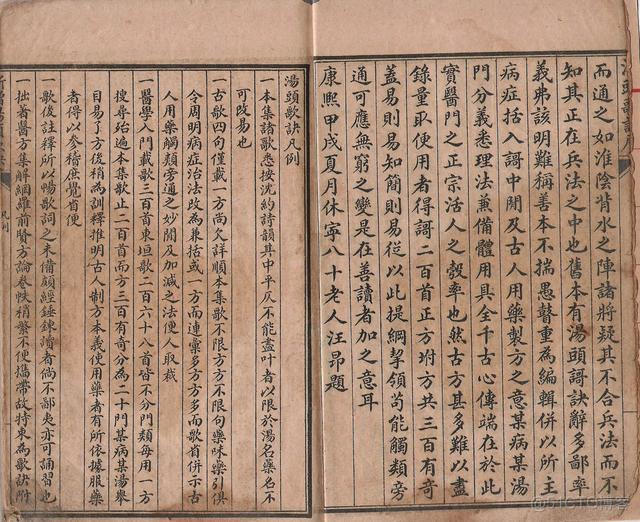 而通之如淮陰背水之陣諸將疑其不合兵法而不
知其正在兵法之中也舊本有湯頭歌訣辭多鄙率
義弗該明難稱善本不揣愚瞽重為編輯併以所主
病症括入謌中間及古人用藥製方之意某病某湯
門分義悉理法兼備體用具全千古心傳端在於此
實醫門之正宗活人之彀率也然古方甚多難以盡
錄量取便用者得謌二百首正方坿方共三百有奇
蓋易則易知簡則易從以此提綱挈領苟能觸類旁
通可應無窮之變是在善讀者加之意耳
康熙甲戌夏月休寧八十老人汪昂題
湯頭歌訣凡例
一本集諸歌悉按沈約詩韻其中平仄不能盡叶者以限於湯名藥名不
可改易也
一古歌四句僅載一方尚欠詳順本集歌不限方方不限句藥味藥引俱
令周明病症治法改為兼括或一方而連彙多方方多而歌省併示古
人用藥觸類旁通之妙間及加減之法便人取裁
一醫學入門載歌三百首東垣歌二百六十八首皆不分門類每用一方
搜尋殆遍本集歌止二百首而方三百有奇分為二十門某病某湯舉
目易了方後稍為訓釋推明古人制方本義使用藥者有所依據服藥
者得以參稽庶覺省便
一歌後註釋所以暢歌詞之未備頗經錘鍊讀者倘不鄙夷亦可誦習也
一拙著醫方集解網羅前賢方論卷帙稍繁不便攜帶故特束為歌訣附
凡例